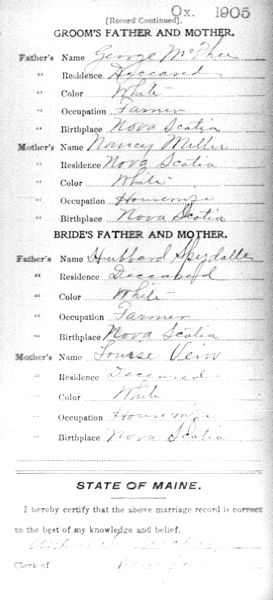 Ox. 1905
[Record Continued].
GROOM'S FATHER AND MOTHER.
Father's Name George McPhee
" Residence Deceased
" Color White
" Occupation Farmer
" Birthplace Nova Scotia
Mother's Name Nancy Miller
" Residence Nova Scotia
" Color White
" Occupation Housewife
" Birthplace Nova Scotia
BRIDE'S FATHER AND MOTHER.
Father's Name Hubbard
" Residence Deceased
" Color White
" Occupation Farmer
" Birthplace Nova Scotia
Mother's Name Louise
" Residence Deceased
" Color White
" Occupation Housewife
" Birthplace Nova Scotia
STATE OF MAINE.
I hereby certify that the above marriage record is correct
to the best of my knowledge and belief.
Clerk of